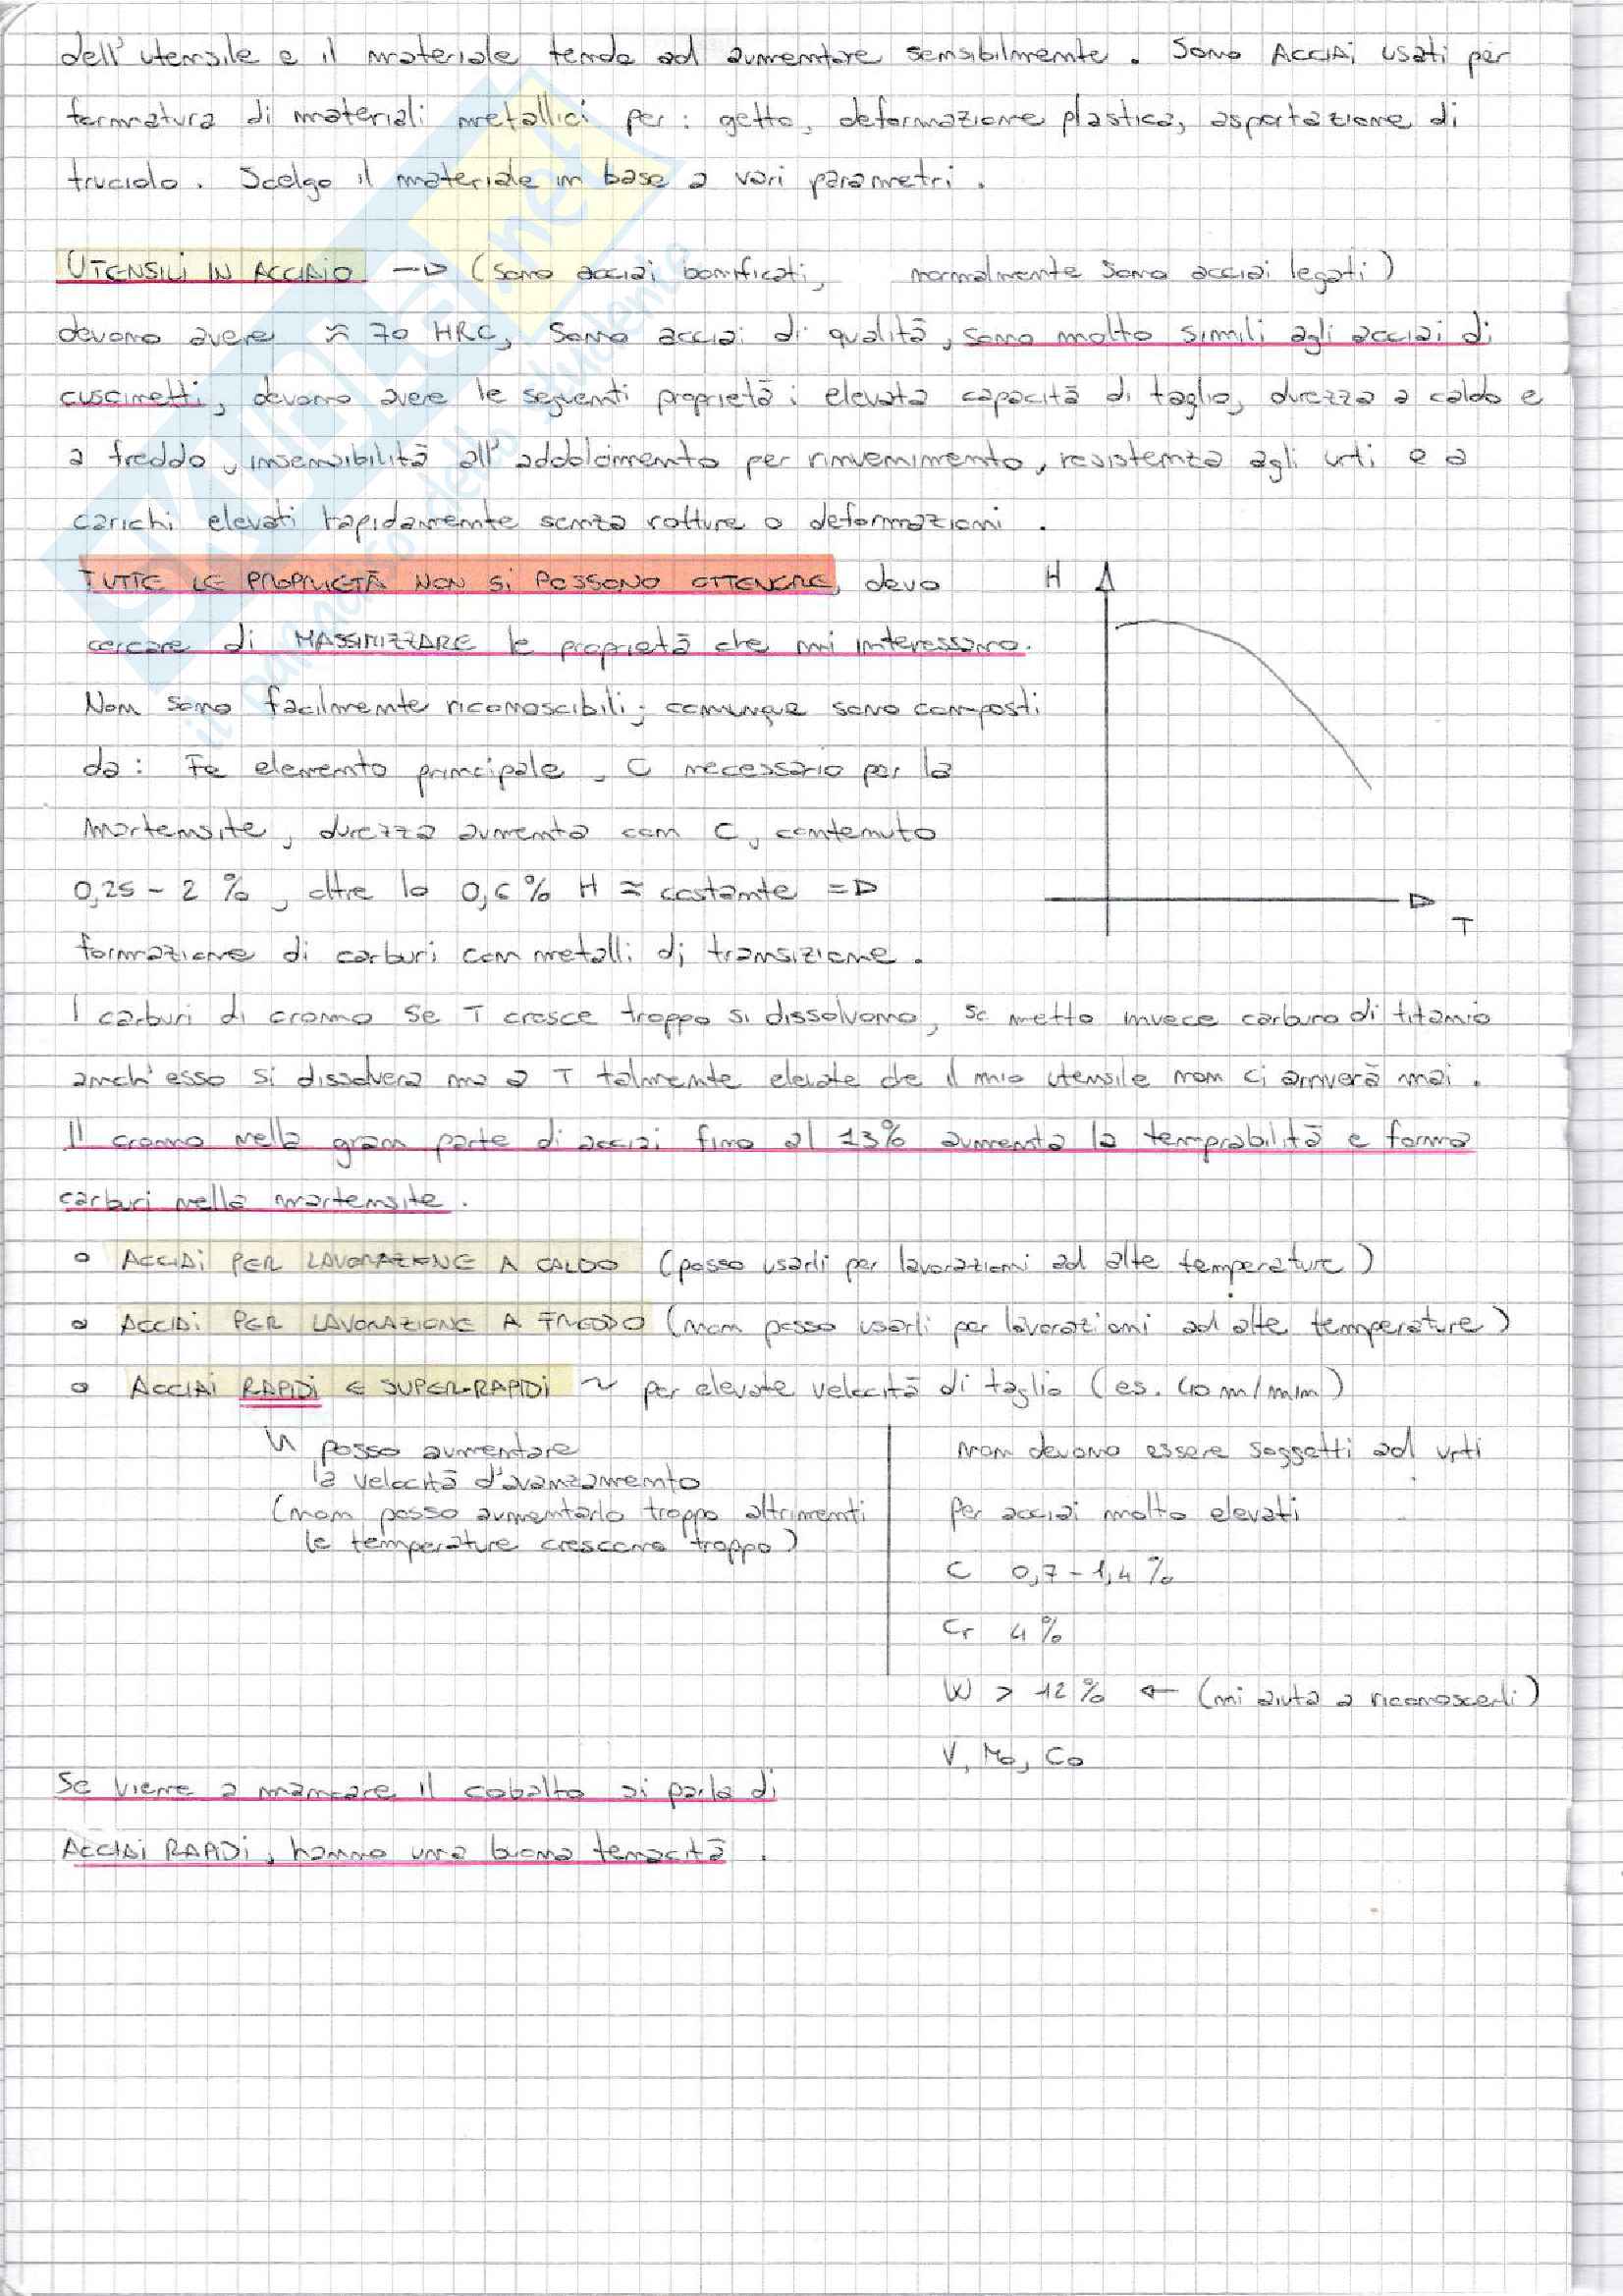 dell'utensile e il materiale tende ad aumentare sensibilmente. Sono ACCIAi usati per
formatura di materiali metallici per: getto, deformazione plastica, asportazione di
truciolo. Scelgo il materiale in base a vari parametri.
UTENSILI IN ACCIAIO —▷ (sono acciai bonificati, normalmente sono acciai legati)
devono avere ≈ 70 HRC, sono acciai di qualità, sono molto simili agli acciai di
cuscinetti, devono avere le seguenti proprietà: elevata capacità di taglio, durezza a caldo e
a freddo, insensibilità all'addolcimento per rinvenimento, resistenza agli urti e a
carichi elevati rapidamente senza rotture o deformazioni.
TUTTE LE PROPRIETÀ NON Si POSSONO OTTENERE, devo
cercare di MASSIMIZZARE le proprietà che mi interessano.
Non sono facilmente riconoscibili; comunque sono composti
da: Fe elemento principale, C necessario per la
martensite, durezza aumenta con C, contenuto
0,25 - 2 %, oltre lo 0,6 % H ≈ costante =▷
formazione di carburi con metalli di transizione.
H
T
I carburi di cromo se T cresce troppo si dissolvono, se metto invece carburo di titanio
anch'esso si dissolverà ma a T talmente elevate che il mio utensile non ci arriverà mai.
Il cromo nella gran parte di acciai fino al 13% aumenta la temprabilità e forma
carburi nella martensite.
o ACCIAi PER LAVORAZIONE A CALDO (posso usarli per lavorazioni ad alte temperature)
o ACCIAi PER LAVORAZIONE A FREDDO (non posso usarli per lavorazioni ad alte temperature)
o ACCIAi RAPIDi E SUPER-RAPIDi ~ per elevate velocità di taglio (es. 40 m/min)
↳ posso aumentare
la velocità d'avanzamento
(non posso aumentarlo troppo altrimenti
le temperature crescono troppo)
non devono essere soggetti ad urti
Per acciai molto elevati
C 0,7 - 1,4 %
Cr 4 %
W > 12 % ← (mi aiuta a riconoscerli)
V, Mo, Co
Se viene a mancare il cobalto si parla di
ACCIAi RAPIDi, hanno una buona tenacità.
SKUOLA.net
il paradiso dello studente